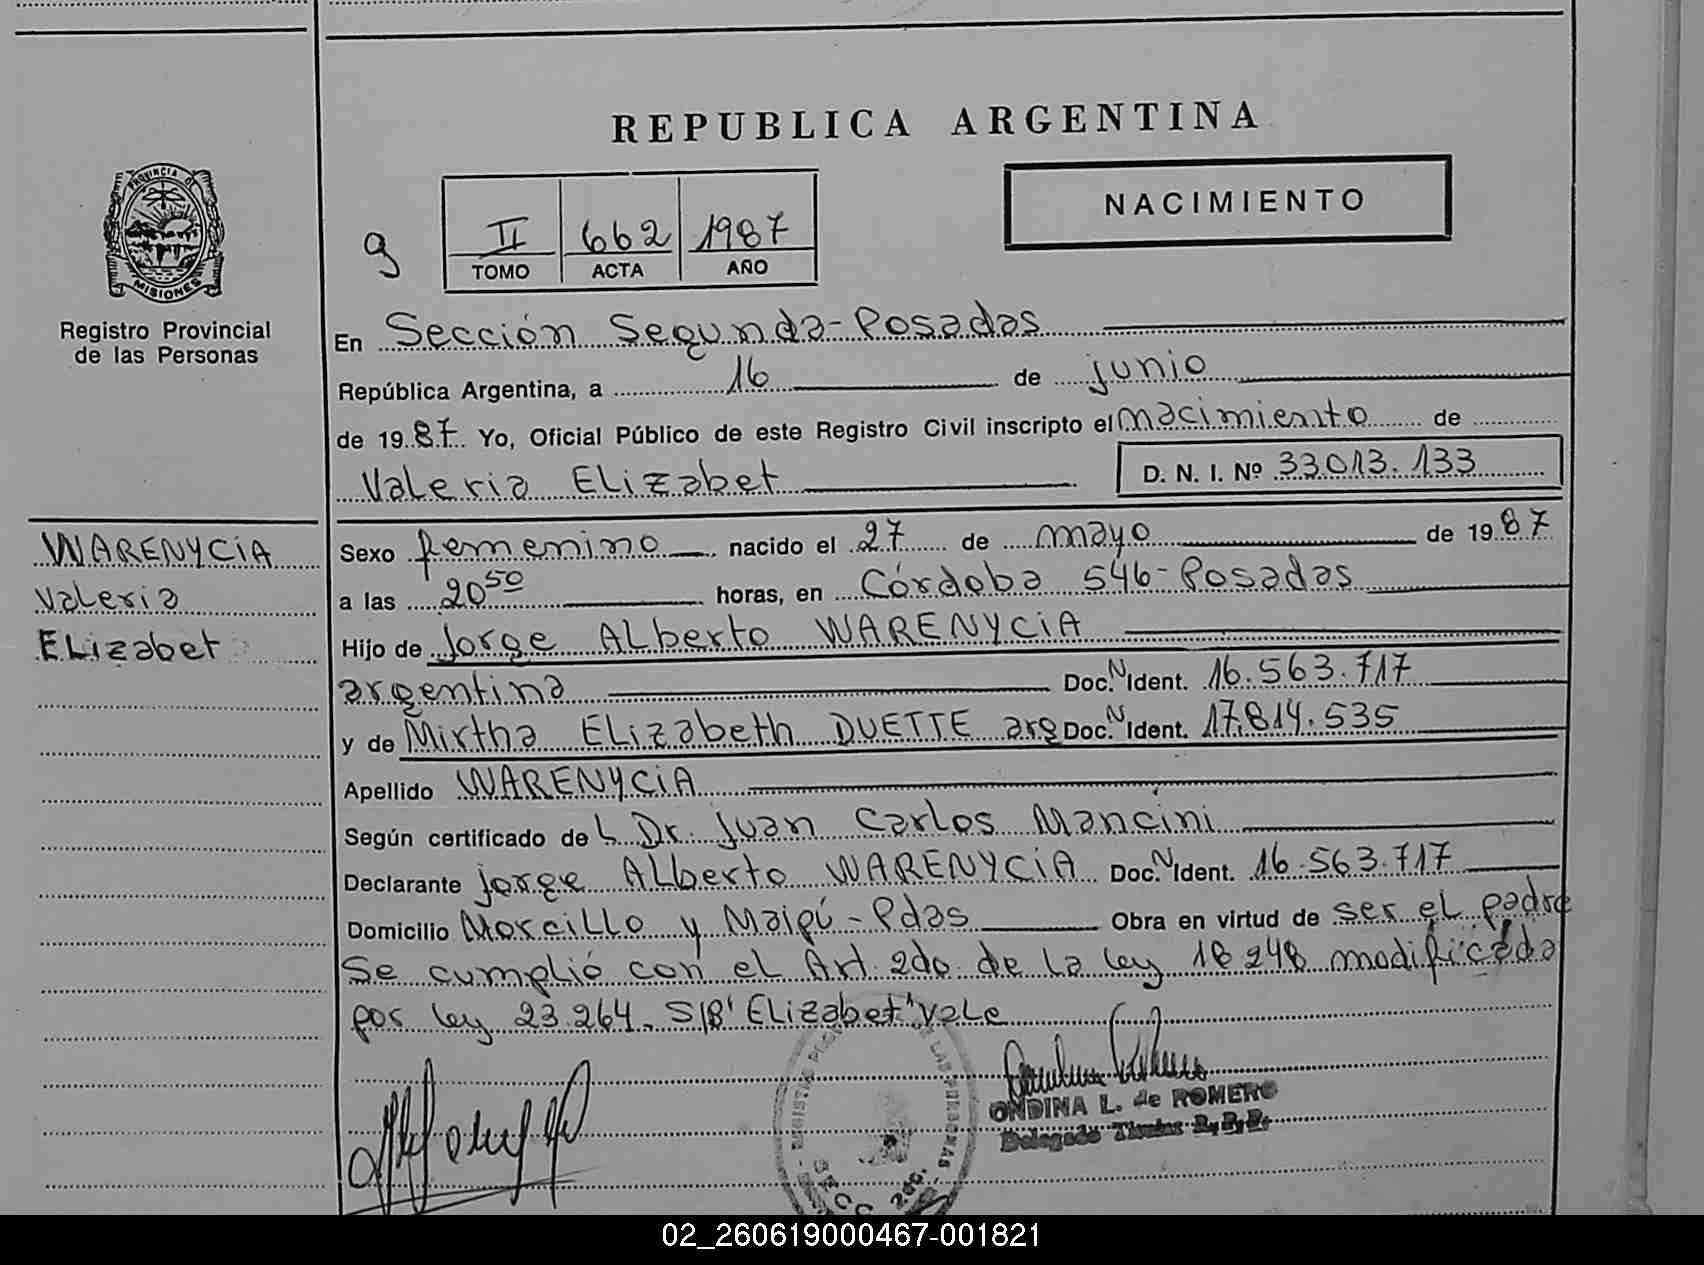 REPUBLICA ARGENTINA
NACIMIENTO
PROVINCIA DE
MISIONES
Registro Provincial
de las Personas
9
II 662 1987
TOMO ACTA AÑO
En Sección Segunda-Posadas
República Argentina, a 16 de junio
de 1987. Yo, Oficial Público de este Registro Civil inscripto el nacimiento de
Valeria Elizabet D. N. I. Nº 33.013.133
WARENYCIA
Valeria
Elizabet
Sexo femenino nacido el 27 de mayo de 1987
a las 20 50 horas, en Córdoba 546-Posadas
Hijo de Jorge Alberto WARENYCIA
argentina Doc. N Ident. 16.563.717
y de Mirtha Elizabeth DUETTE arg Doc. N Ident. 17.814.535
Apellido WARENYCIA
Según certificado de L Dr. Juan Carlos Mancini
Declarante Jorge Alberto WARENYCIA Doc. N Ident. 16.563.717
Domicilio Morcillo y Maipú-Pdas Obra en virtud de ser el padre
Se cumplió con el Art. 2do. de la ley 18248 modificada
por ley 23.264. S/B "Elizabet" vale
DE LAS PERSONAS
ONDINA L. de ROMERO
02_260619000467-001821